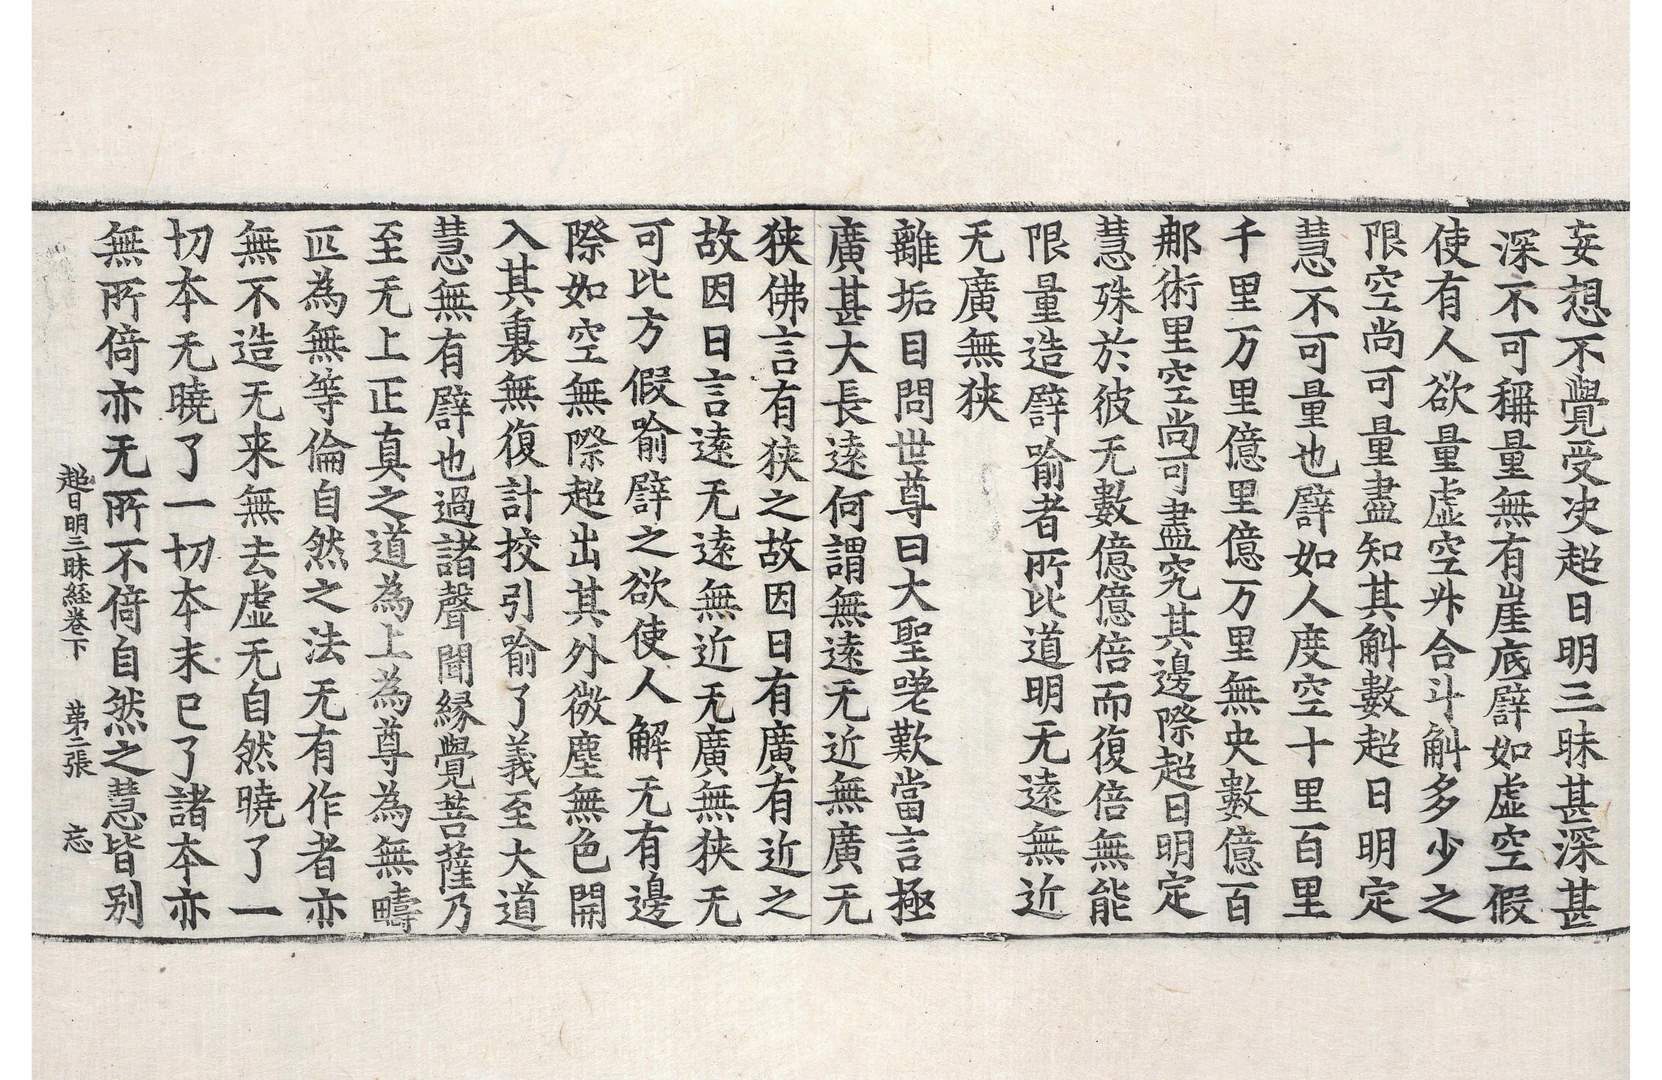 妄想不覺受决超日明三昧甚深甚
深不可稱量無有崖底譬如虚空假
使有人欲量虚空升合斗斛多少之
限空尚可量盡知其斛數超日明定
慧不可量也譬如人度空十里百里
千里万里億里億万里無央數億百
那術里空尚可盡究其邊際超日明定
慧殊於彼无數億億倍而復倍無能
限量造譬喻者所比道明无遠無近
无廣無狹
離垢目問世尊曰大聖嗟歎當言極
廣甚大長遠何謂無遠无近無廣无
狹佛言有狹之故因曰有廣有近之
故因曰言遠无遠無近无廣無狹无
可比方假喻譬之欲使人解无有邊
際如空無際超出其外微塵無色開
入其裏無復計挍引喻了義至大道
慧無有譬也過諸聲聞緣覺菩薩乃
至无上正真之道為上為尊為無疇
匹為無等倫自然之法无有作者亦
無不造无来無去虚无自然曉了一
切本无曉了一切本末已了諸本亦
無所倚亦无所不倚自然之慧皆別
超日明三昧経卷下 苐二張 忘